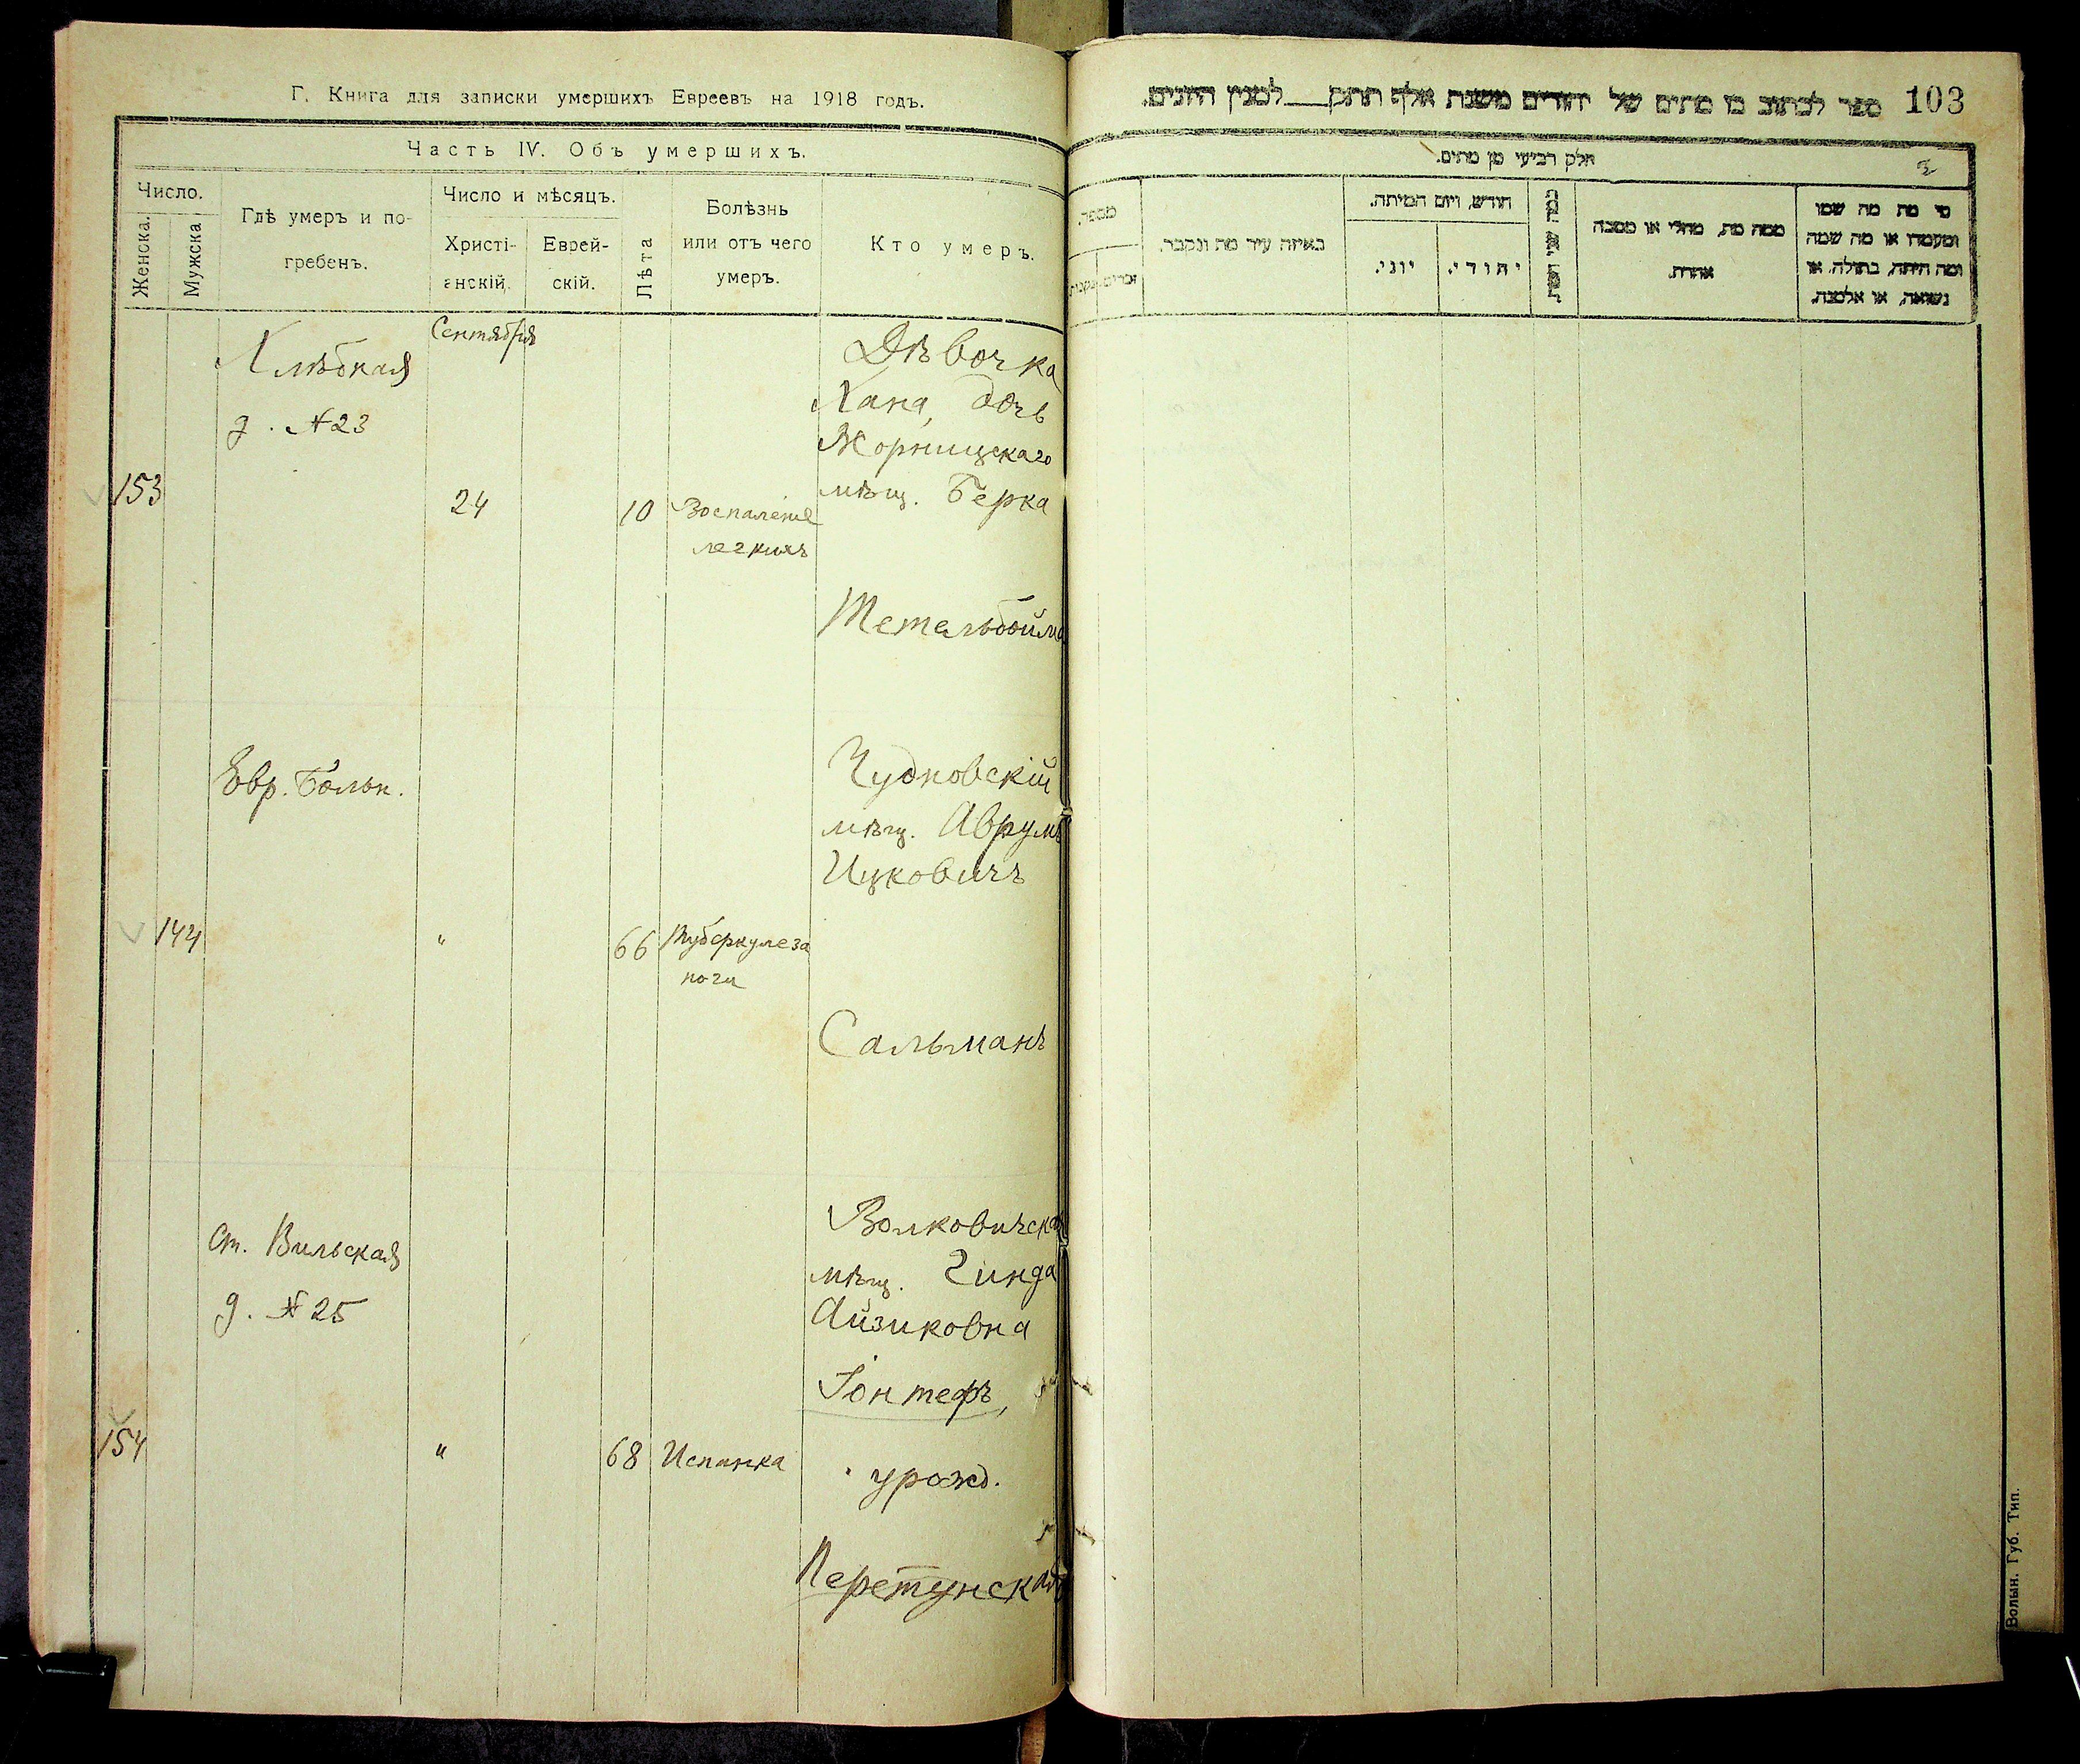 Г. Книга для записки умершихъ Евреевъ на 1918 годъ.
Часть IV. Объ умершихъ.
Число.
Женска.
Мужска
Гдѣ умеръ и по-
гребенъ.
Число и мѣсяцъ.
Христі-
анскій.
Еврей-
скій.
Лѣта
Болѣзнь
или отъ чего
умеръ.
Кто умеръ.
Сентября
Хлѣбная
д. №23
153
24
10
Воспаленіе
легкихъ
Дѣвочка
Хана, дочь
Жорнищскаго
мѣщ. Берка
Тетельбойма
Евр. Больн.
144
"
66
Туберкулеза
ноги
Чудновскій
мѣщ. Аврумъ
Ицковичъ
Сальманъ
ст. Вильская
д. №25
154
"
68
Испанка
Волковичская
мѣщ. Гинда
Айзиковна
Іонтефъ,
урожд.
103
ספר לכתוב בו מתים של יהודים משנת אלף תתק לסנין היונים.
חלק רביעי מן מתים.
מספר.
באיזה עיר מת ונקבר.
חודש, ויום המיתה.
יוני.
יהודי.
ממה מת, מחלי או מסבה
אחרת.
מי מת מה שמו
ומעמדו או מה שמה
ומה היתה, בתולה, או
נשואה, או אלמנה.
Волын. Губ. Тип.